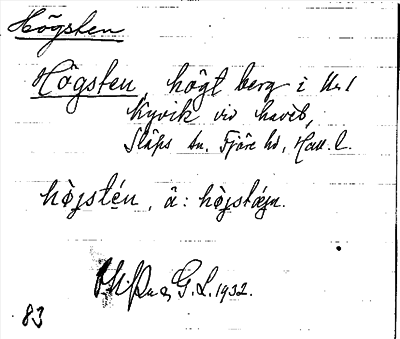 Högsten
Högsten, högt berg i N. 1
Kyvik vid havet,
Släps sn. Fjäre hd, Hall. l.
hò̩jstén, ä: hò̩jstǽjn.
G. L. 1932.
83